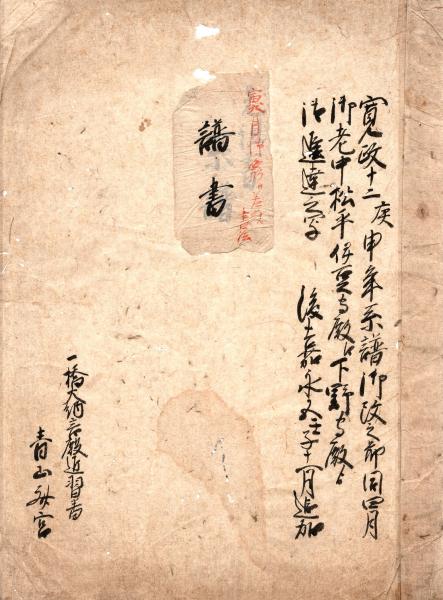 寛政十二庚申年系譜御改之節同四月
御老中松平伊豆守殿江下野守殿ゟ
御進達之写
後嘉永五壬子十一月追加
譜書
一橋大納言殿近習番
青山